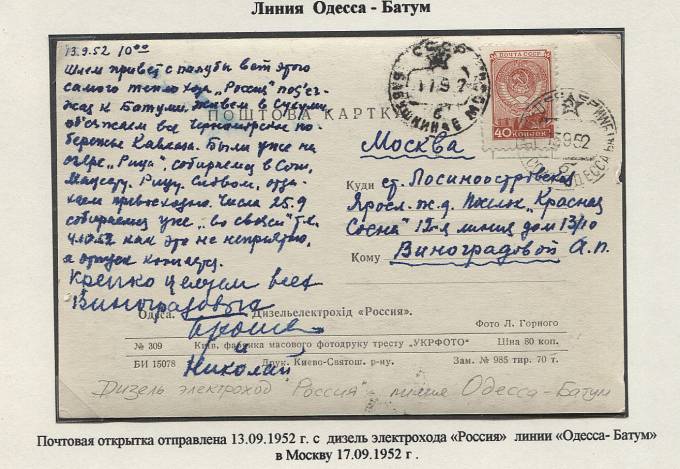 Линия Одесса - Батум
13.9.52 10⁰⁰
Шлем привет с палубы вот этого
самого теплохода „Россия" под'ез-
жая к Батуми. Живем в Сухуми,
об'езжаем все Черноморское по-
бережье Кавказа. Были уже на
озере „Рица", собираемся в Сочи,
Мацесту, Рицу. Словом, отды-
хаем превосходно. Числа 25.9
собираемся уже „во свояси" т.к.
4.10.52 как это не неприятно,
а отпуск кончается.
Крепко целуем всех
Виноградовы
и
Николай
ПОШТОВА КАРТКА
СССР
17 9 52
ПОЧТА СССР
40 КОПЕЕК
9 52
ОДЕССА
Москва
Куди
ст. Лосиноостровская
Яросл. ж.д. Поселок „Красная
Сосна" 12-я линия дом 13/10
Кому
Виноградовой А.П.
Одеса. Дизельелектрохід «Россия».
Фото Л. Горного
№ 309 Київ, фабрика масового фотодруку тресту „УКРФОТО" Ціна 80 коп.
БИ 15078 Друк. Києво-Святош. р-ну. Зам. № 985 тир. 70 т.
Дизель электроход "Россия" линия Одесса-Батум
Почтовая открытка отправлена 13.09.1952 г. с дизель электрохода «Россия» линии «Одесса- Батум»
в Москву 17.09.1952 г .